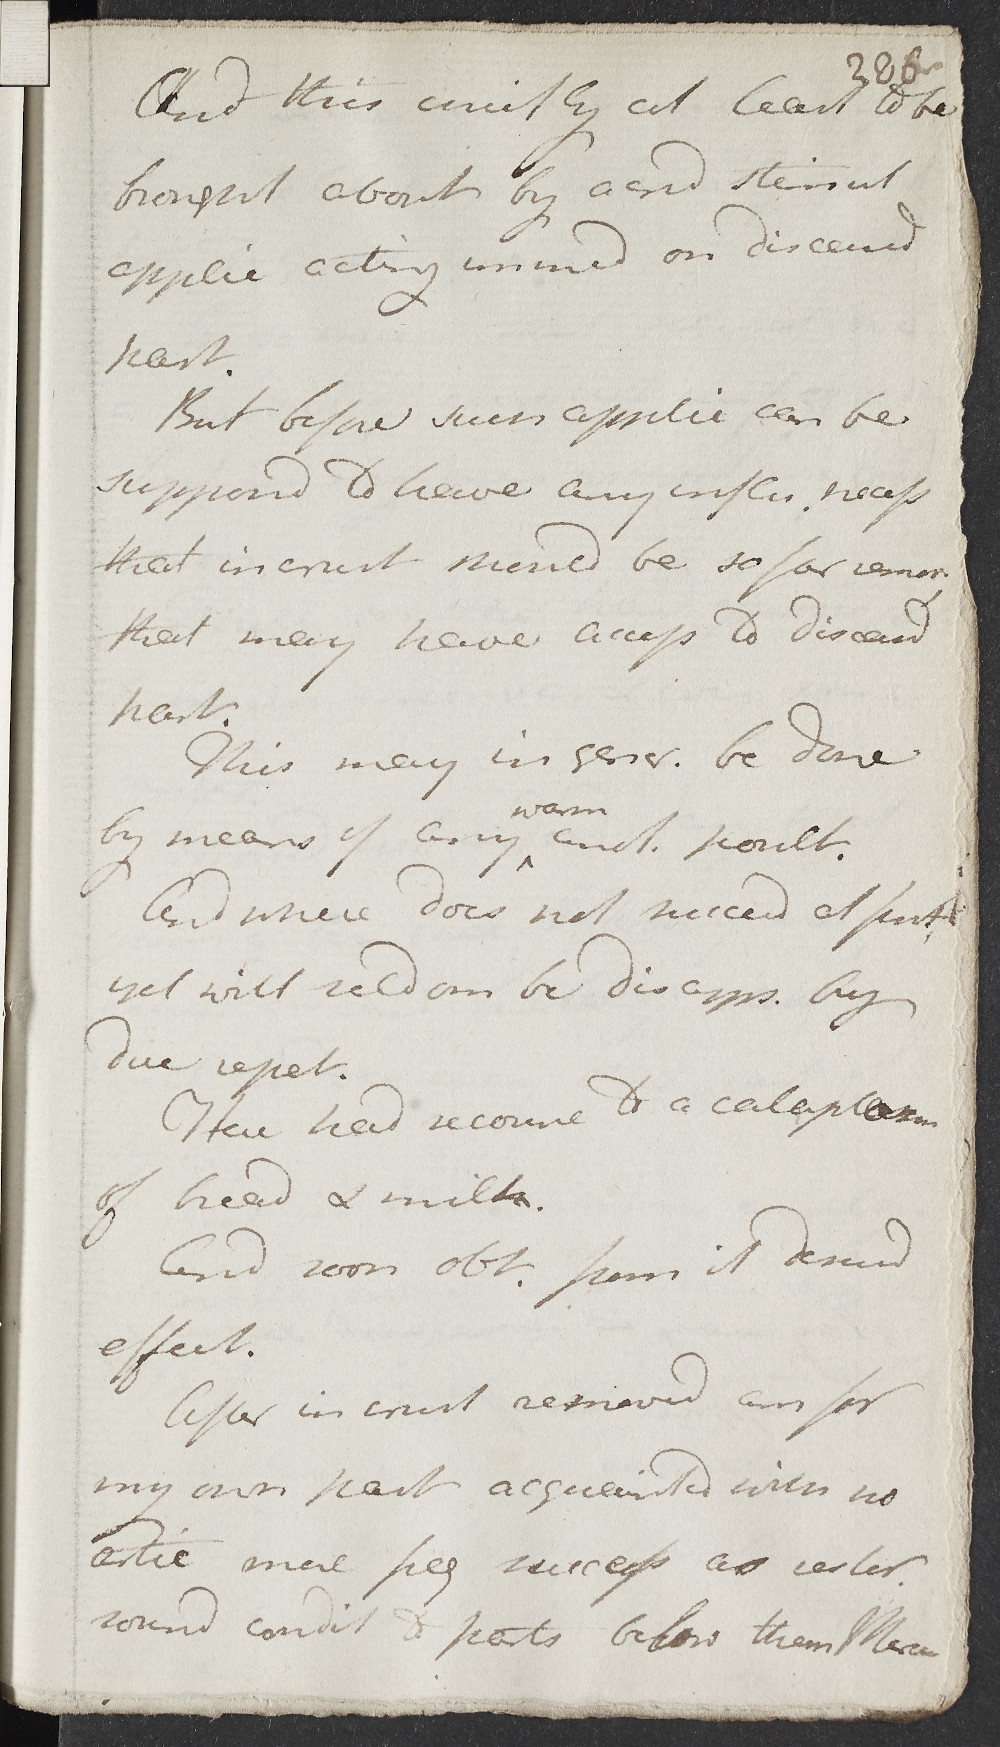 And this chiefly at least to be
brought about by acrid stimul
applic acting immed on diseased
part.
But before such applic can be
supposed to have any influ. necess
that incrust should be so far remov.
that may have access to diseasd
part.
This may in gener. be done
by means of any warm emol. poult.
And where does not succeed at first
yet will seldom be disapp. by
due repet.
Here had recourse to a cataplasm
of bread & milk.
And soon obt. from it desired
effect.
After incrust removed am for
my own part acquainted with no
artic more freq success as restor.
sound condit to parts below them Mercu